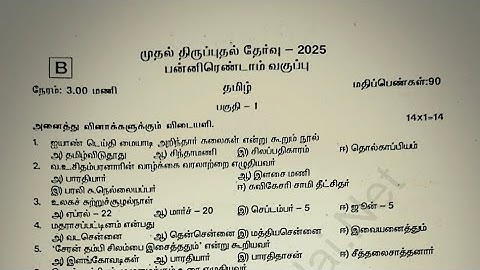 முதல் திருப்புதல் தேர்வு – 2025
B
பன்னிரெண்டாம் வகுப்பு
நேரம்: 3.00 மணி தமிழ் மதிப்பெண்கள்:90
பகுதி – I
அனைத்து வினாக்களுக்கும் விடையளி. 14x1=14
1. ஐயாண் டெய்தி மையாடி அறிந்தார் கலைகள் என்று கூறும் நூல்
அ) தமிழ்விடுதூது ஆ) சிந்தாமணி இ) சிலப்பதிகாரம் ஈ) தொல்காப்பியம்
2. வ.உ.சிதம்பரனாரின் வாழ்க்கை வரலாற்றை எழுதியவர்
அ) பாரதியார் ஆ) இளசை மணி
இ) பரலி சு.நெல்லையப்பர் ஈ) கவிகேசரி சாமி தீட்சிதர்
3. உலகச் சுற்றுச்சூழல்நாள்
அ) ஏப்ரல் – 22 ஆ) மார்ச் – 20 இ) செப்டம்பர் – 5 ஈ) ஜூன் – 5
4. மதராசப்பட்டினம் என்பது
அ) வடசென்னை ஆ) தென்சென்னை இ) மத்தியசென்னை ஈ) இவையனைத்தும்
5. 'சேரன் தம்பி சிலம்பை இசைத்ததும்' என்று கூறியவர்
அ) இளங்கோவடிகள் ஆ) பாரதியார் இ) பாரதிதாசன் ஈ) சீத்தலைசாத்தனார்